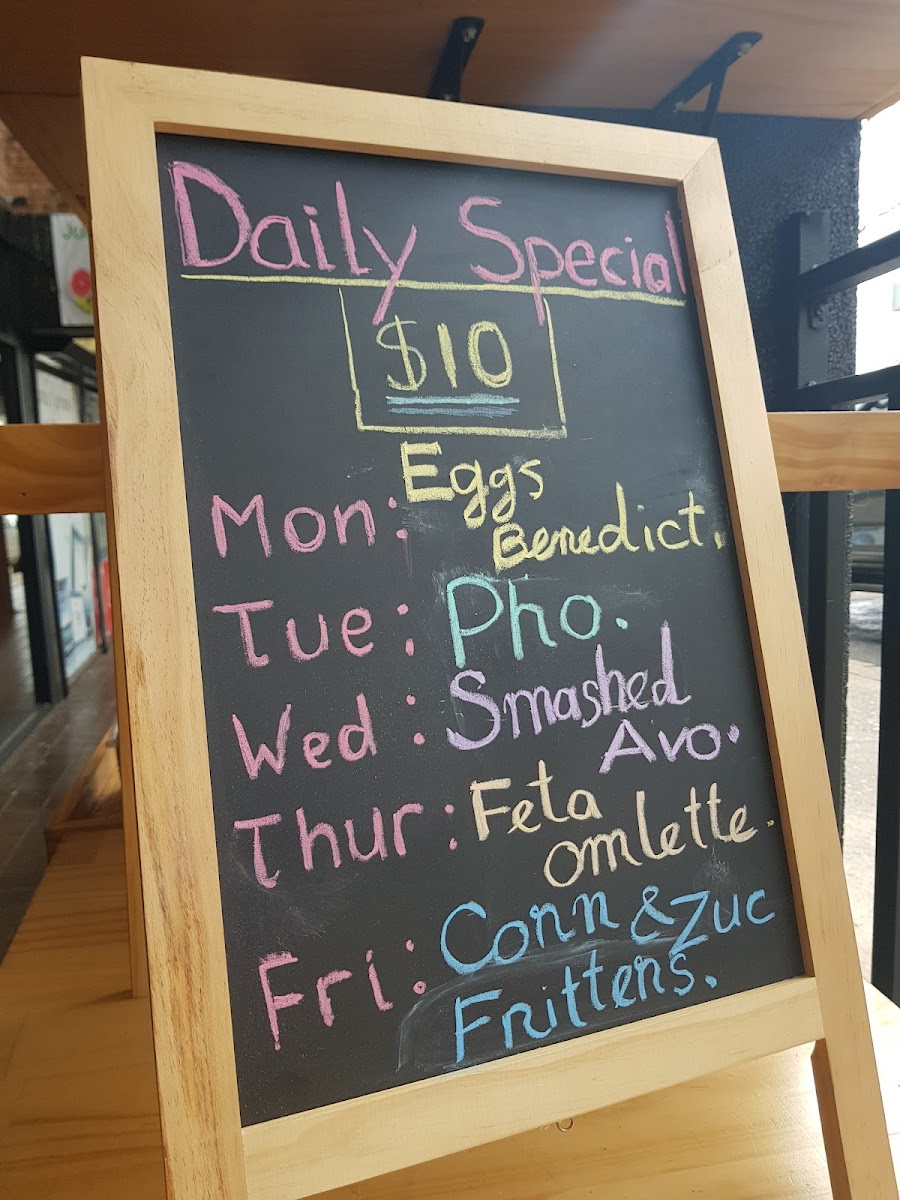 Daily Special
$10
Mon: Eggs
Benedict.
Tue: Pho.
Wed: Smashed
Avo.
Thur: Feta
omlette
Fri: Conn & Zuc
Frittens.